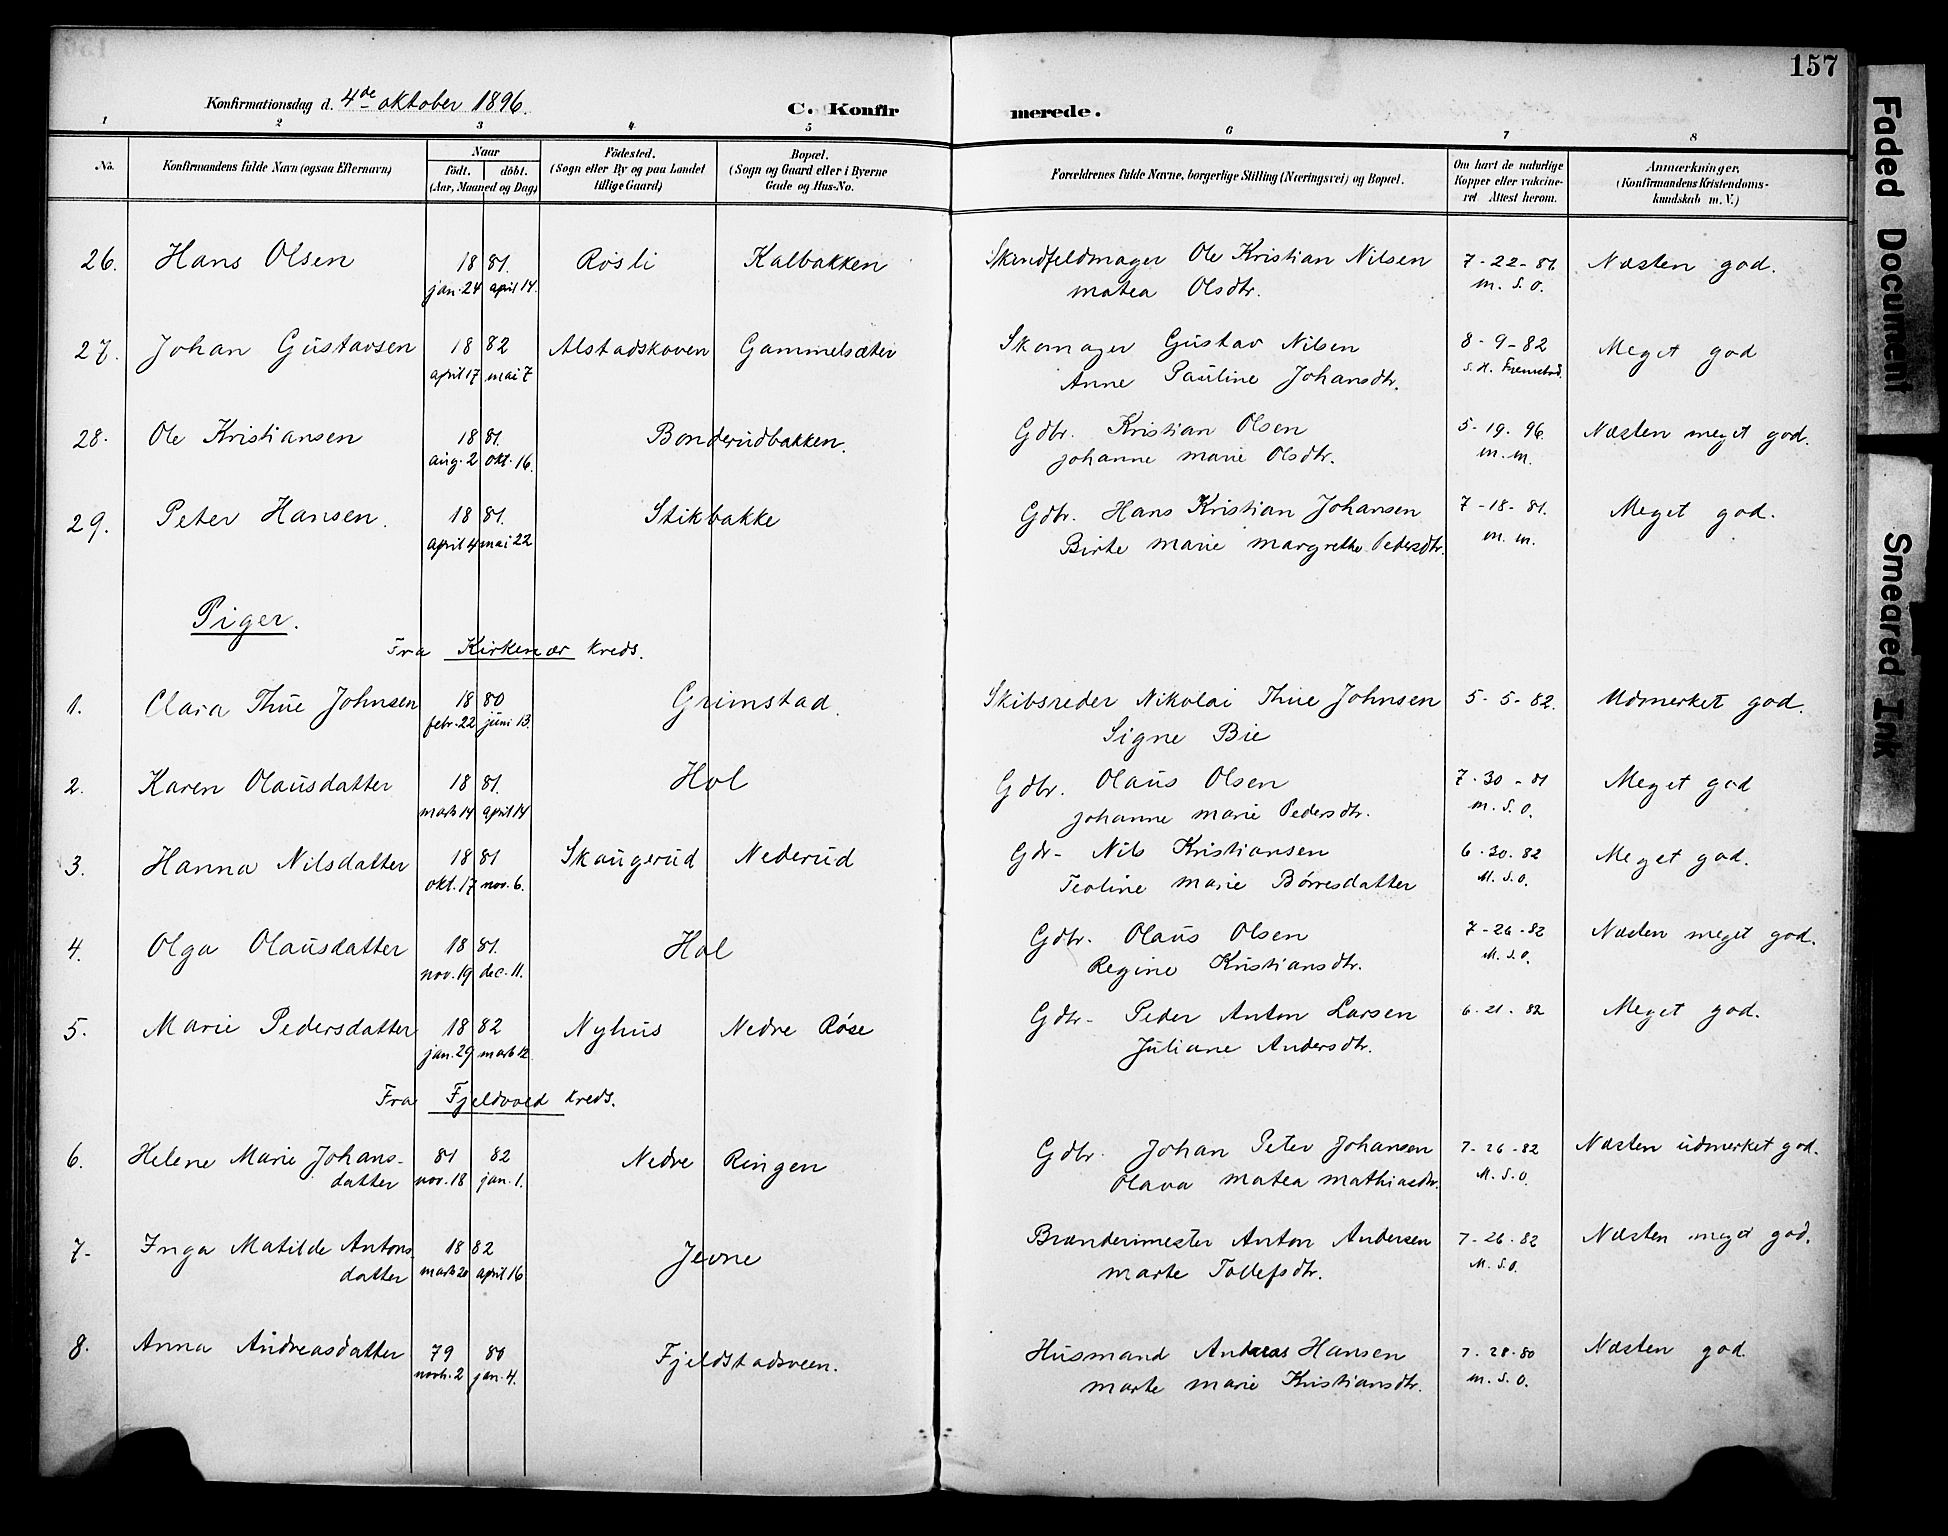 157
Konfirmationsdag d. 4de oktober 1896.
C. Konfirmerede.
1 2 3 4 5 6 7 8
No. Konfirmandens fulde Navn (ogsaa Efternavn) Naar født. døbt. (Aar, Maaned og Dag) Fødested. (Sogn eller By og paa Landet tillige Gaard) Bopæl. (Sogn og Gaard eller i Byerne Gade og Hus-No. Forældrenes fulde Navne, borgerlige Stilling (Næringsvei) og Bopæl. Om havt de naturlige Kopper eller vakcineret Attest herom. Anmærkninger, (Konfirmandens Kristendomskundskab m. V.)
26. Hans Olsen 18 81. Røsli Kalbakken Skindfeldmager Ole Kristian Nilsen 7-22-81 Næsten god.
jan. 24 april 14. Matea Olsdtr. m. S. O.
27. Johan Gustavsen 18 82 Alstadskoven Gammelsæter Skomager Gustav Nilsen 8-9-82 Meget god
april 17 mai 7 Anne Pauline Johansdtr. S. H.
28. Ole Kristiansen 18 81. Bonderudbakken. Gdbr. Kristian Olsen 5-19-96. Næsten meget god.
aug. 2 okt. 16. Johanne Marie Olsdtr. m. m.
29. Peter Hansen. 18 81. Stikbakke Gdbr. Hans Kristian Johansen 7-18-81. Meget god.
april 4 mai 22 Birte Marie Margrethe Pedersdtr. m. m.
Piger.
Fra Kirkenær kreds.
1. Clara Thue Johnsen 18 80 Grimstad. Skibsreder Nikolai Thue Johnsen 5-5-82. Udmerket god.
febr. 22 juni 13. Signe Bie
2. Karen Olausdatter 18 81. Hol Gdbr. Olaus Olsen 7-30-81 Meget god
marts 14 april 14 Johanne Marie Pedersdtr. m. S. O.
3. Hanna Nilsdatter 18 81 Skaugerud Nederud Gdr- Nils Kristiansen 6-30-82 Meget god.
okt. 17 nov. 6. Teoline Marie Børresdatter M. S. O.
4. Olga Olausdatter 18 81. Hol Gdbr. Olaus Olsen 7-26-82 Næsten meget god.
nov. 19 dec. 11. Regine Kristiansdtr. M. S. O.
5. Marie Pedersdatter 18 82 Nyhus Nedre Røse Gdbr- Peder Anton Larsen 6-21-82 Meget god.
jan. 29 marts 12. Juliane Andersdtr.
Fra Fjeldvold kreds.
6. Helene Marie Johans- 81 82 Nedre Ringen Gdbr. Johan Peter Johansen 7-26-82 Næsten udmerket god.
datter nov. 18 jan. 1. Olava Matea Mathiasdtr. M. S. O.
7- Inga Matilde Antons- 18 82 Jevne Brænderimester Anton Andersen 7-26-82 Næsten meget god.
datter marts 20 april 16 Marte Tollefsdtr. M. S. O.
8. Anna Andreasdatter 79 80 Fjeldstadsveen. Husmand Andreas Hansen 7-28-80 Næsten god.
novb. 2 jan. 4. Marte Marie Kristiansdtr. m. S. O.
Faded Document
Smeared Ink